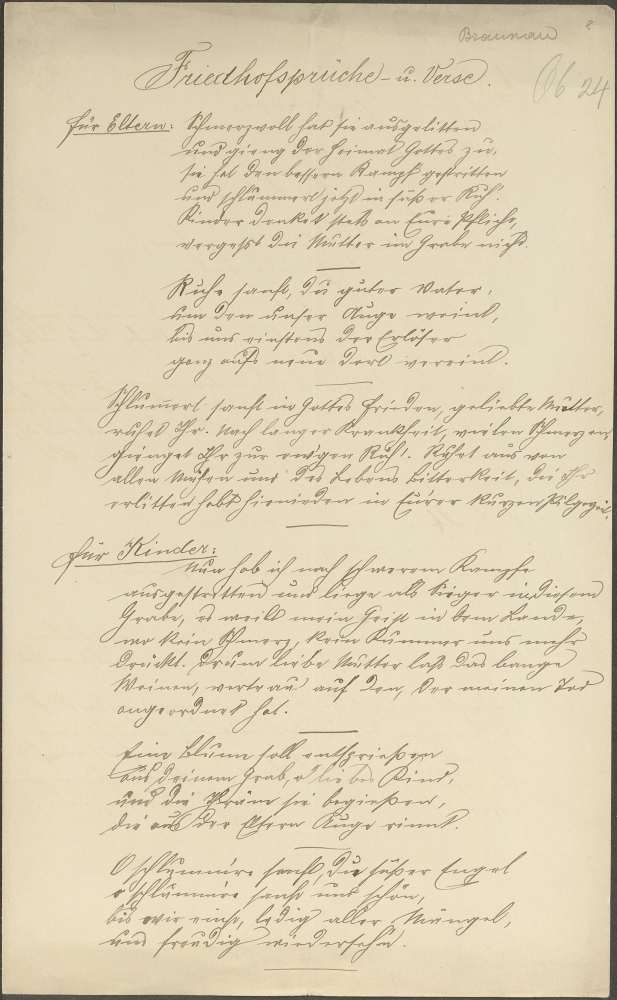 Braunau
Friedhofsprüche - u. Verse.
Ob 24
für Eltern: Schmerzvoll hat sie ausgelitten
und gieng der Heimat Gottes zu,
sie hat den bessern Kampf gestritten
und schlummert jetzt in süßer Ruh!
Kinder denket stets an Eure Pflicht,
vergesst die Mutter im Grabe nicht.
Ruhe sanft, du guter Vater,
um den unser Auge weint,
bis uns einstens der Erlöser
ganz aufs neue dort vereint.
Schlummert sanft in Gottes Frieden, geliebte Mutter,
ruhet Ihr. Nach langer Krankheit, vielen Schmerzen,
gienget Ihr zur ewigen Ruh!. Ruhet aus von
allen Mühen und des Lebens Bitterkeit, die Ihr
erlitten habt hienieden in Eurer kurzen Pilgerzeit.
für Kinder:
Nun hab ich nach schwerem Kampfe
ausgestritten und liege als Sieger in diesem
Grabe, es weilt mein Geist in dem Lande,
wo kein Schmerz, kein Kummer uns mehr
drückt. Drum liebe Mutter laß das bange
Weinen, vertrau auf den, der meinen Tod
angeordnet hat.
Eine Blume soll entsprießen
aus deinem Grab, o liebes Kind,
und die Thräne sie begießen,
die aus der Eltern Auge rinnt.
O schlummre sanft, Du süßer Engel
o schlummre sanft und schön,
bis wir einst, ledig aller Mängel,
uns freudig wiedersehn.